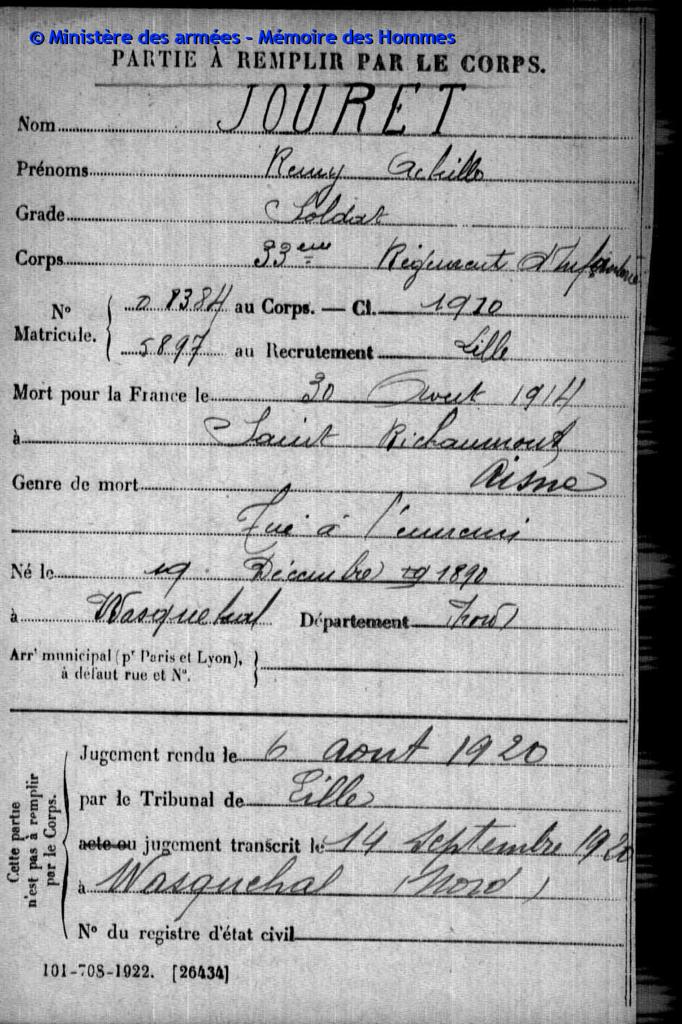 © Ministère des armées - Mémoire des Hommes
PARTIE À REMPLIR PAR LE CORPS.
Nom JOURET
Prénoms Remy Achille
Grade Soldat
Corps 33eme Régiment d'Infanterie
N° Matricule. { 08384 au Corps. — Cl. 1910
5897 au Recrutement Lille
Mort pour la France le 30 Aout 1914
à Saint Richaumont
Aisne
Genre de mort
Tué à l'ennemi
Né le 19 Décembre 1890
à Wasquehal Département Nord
Arrt municipal (pr Paris et Lyon), à défaut rue et N°. }
Cette partie n'est pas à remplir par le Corps.
Jugement rendu le 6 aout 1920
par le Tribunal de Lille
acte ou jugement transcrit le 14 Septembre 1920
à Wasquehal (Nord)
N° du registre d'état civil
101-708-1922. [26434]